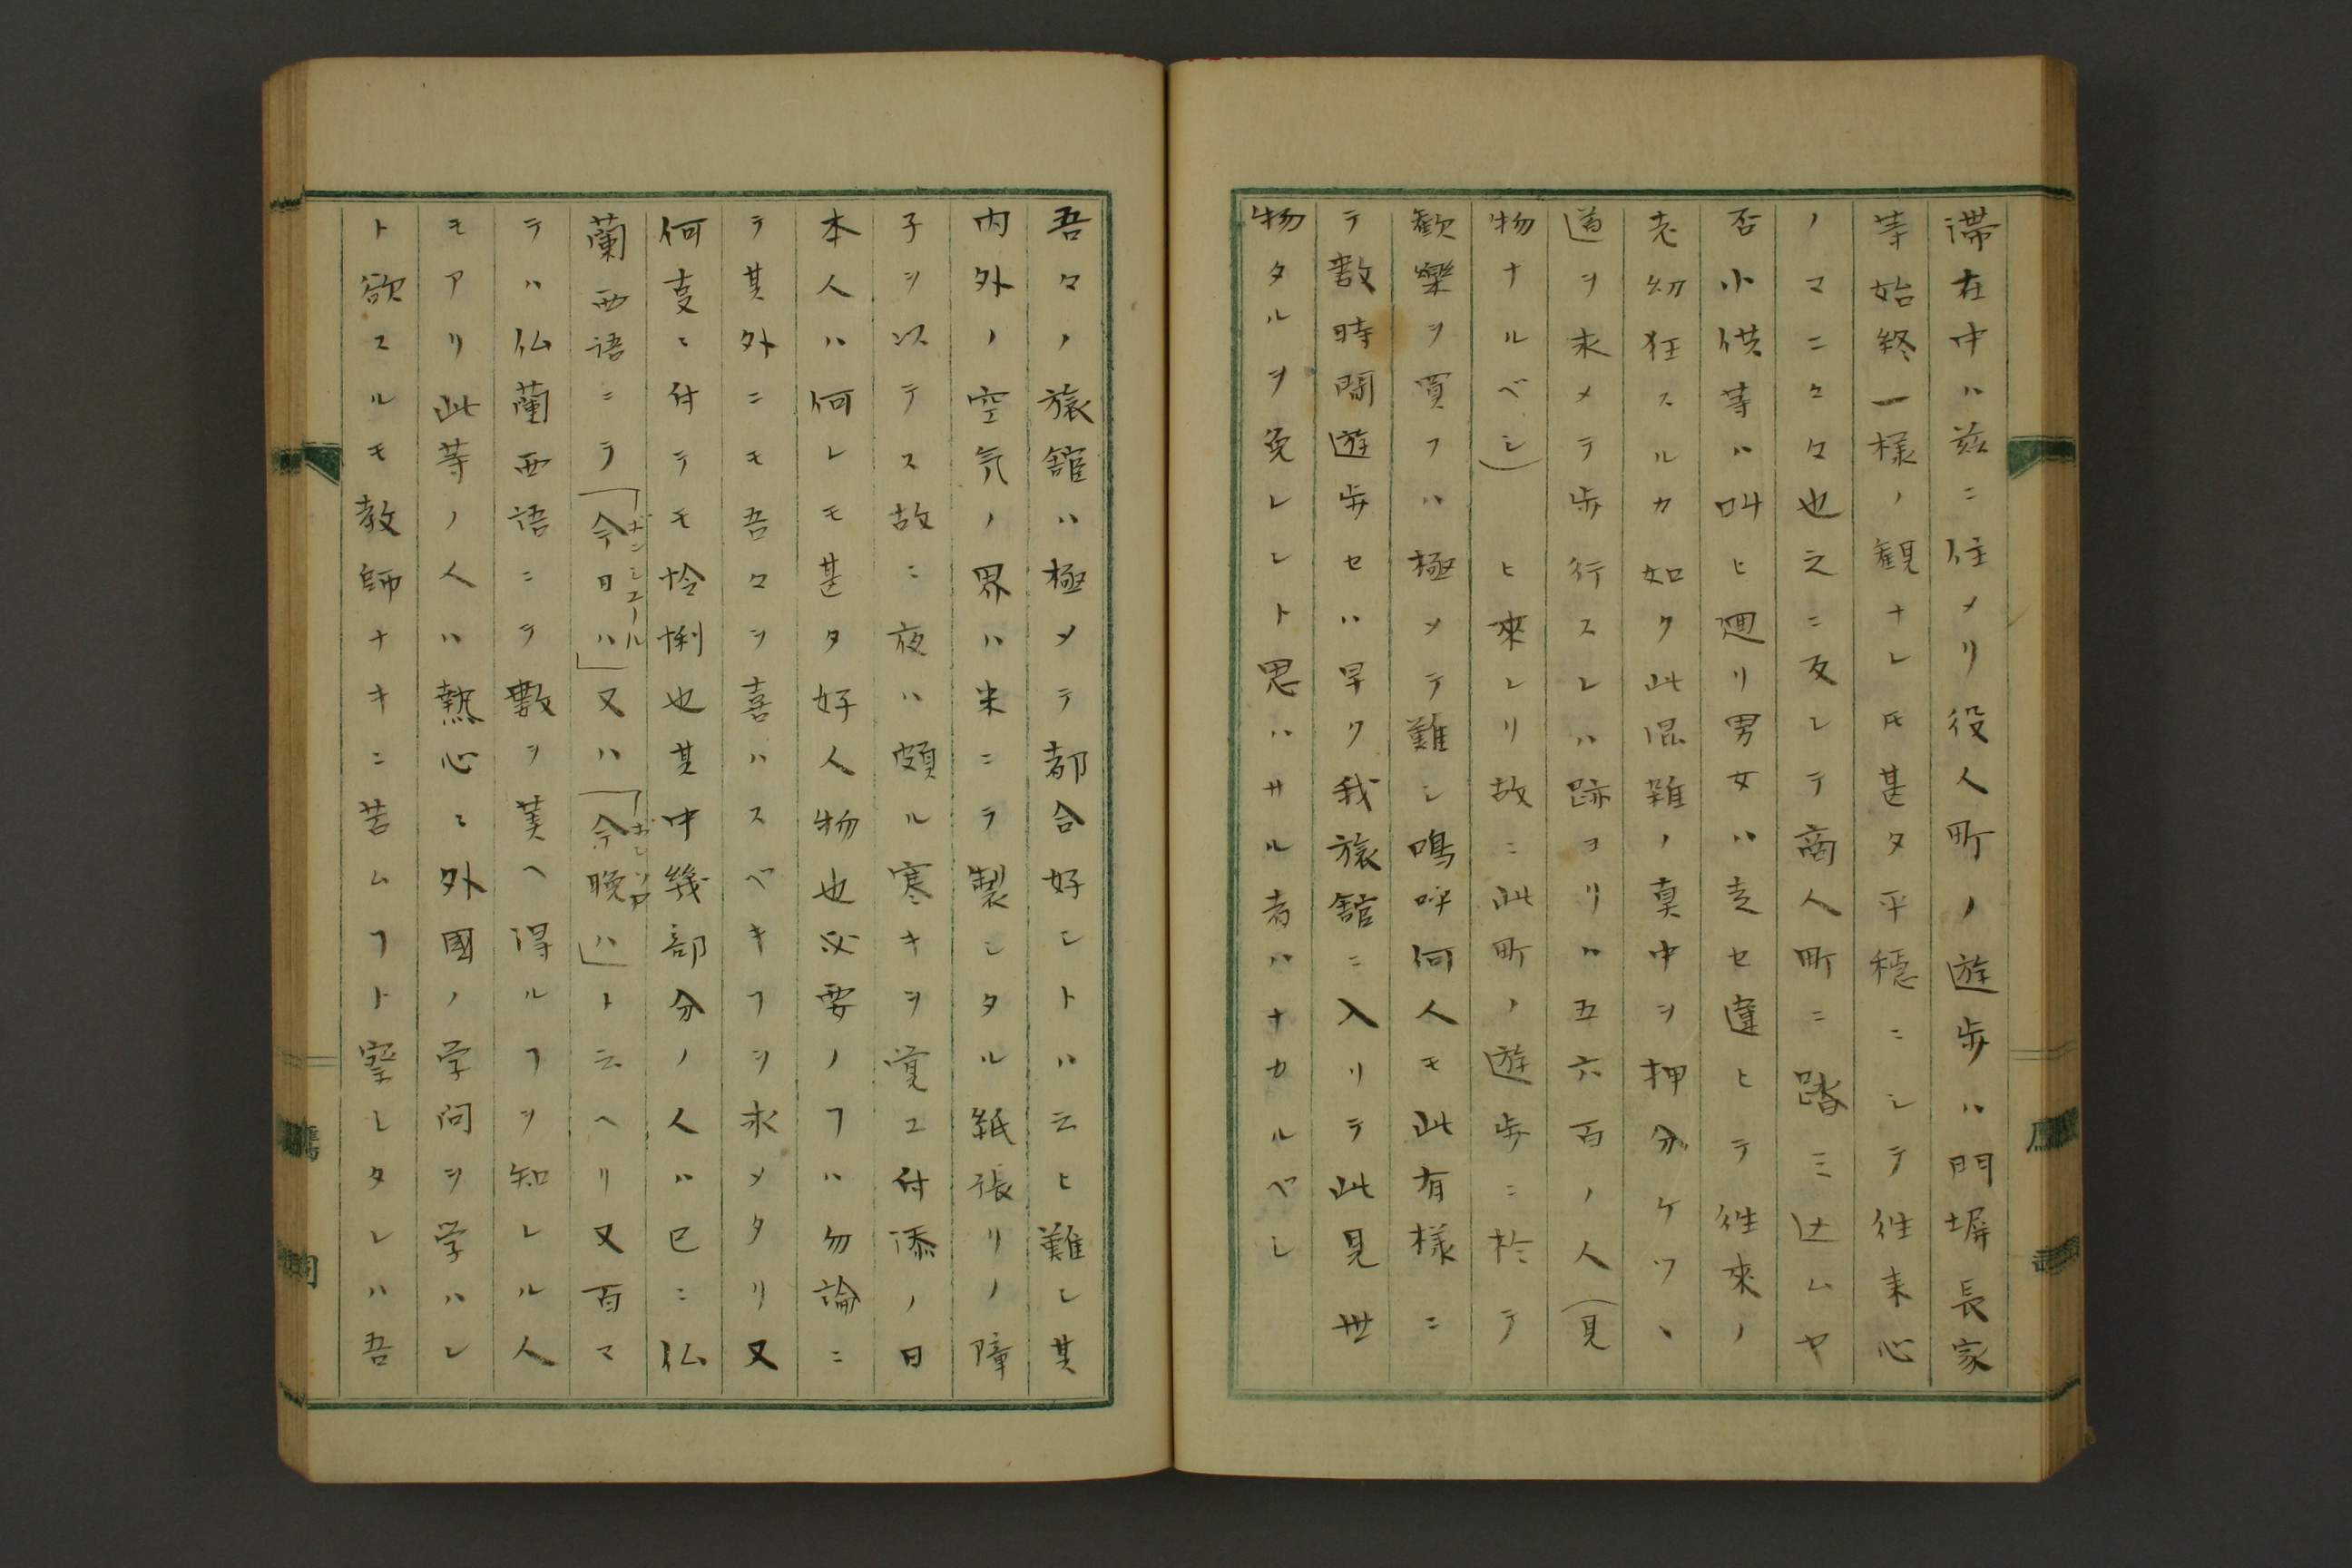 滞在中ハ茲ニ住メリ役人町ノ遊歩ハ門塀長家
等始終一様ノ観ナレ𪜈甚タ平穏ニシテ往来心
ノマニクヽ也之ニ反シテ商人町ニ踏ミ込ムヤ
否小供等ハ叫ヒ廻リ男女ハ走セ違ヒテ往來ノ
老幼狂スルカ如ク此混雑ノ真中ヲ押分ケツヽ
道ヲ求メテ歩行スレハ跡ヨリハ五六百ノ人(見
物ナルベシ)ヒ來レリ故ニ此町ノ遊歩ニ於テ
歓樂ヲ買フハ極メテ難シ嗚呼何人モ此有様ニ
テ数時間遊歩セハ早ク我旅舘ニ入リテ此見世
物タルヲ免レント思ハサル者ハナカルベシ
吾々ノ旅舘ハ極メテ都合好シトハ云ヒ難シ其
内外ノ空気ノ界ハ米ニテ製シタル紙張リノ障
子ヲ以テス故ニ夜ハ頗ル寒キヲ覚ユ付添ノ日
本人ハ何レモ甚タ好人物也必要ノヿハ勿論ニ
テ其外ニモ吾々ヲ喜ハスベキヿヲ求メタリ又
何事ニ付テモ怜悧也其中幾部分ノ人ハ已ニ仏
蘭西语ニテ「今日ハ」又ハ「今晩ハ」ト云ヘリ又百マ
ボンジユール
ボンソワ
テハ仏蘭西语ニテ數ヲ美ヘ得ルヿヲ知レル人
モアリ此等ノ人ハ熱心ニ外國ノ学问ヲ学ハン
ト欲スルモ教師ナキニ苦ムヿト察シタレハ吾